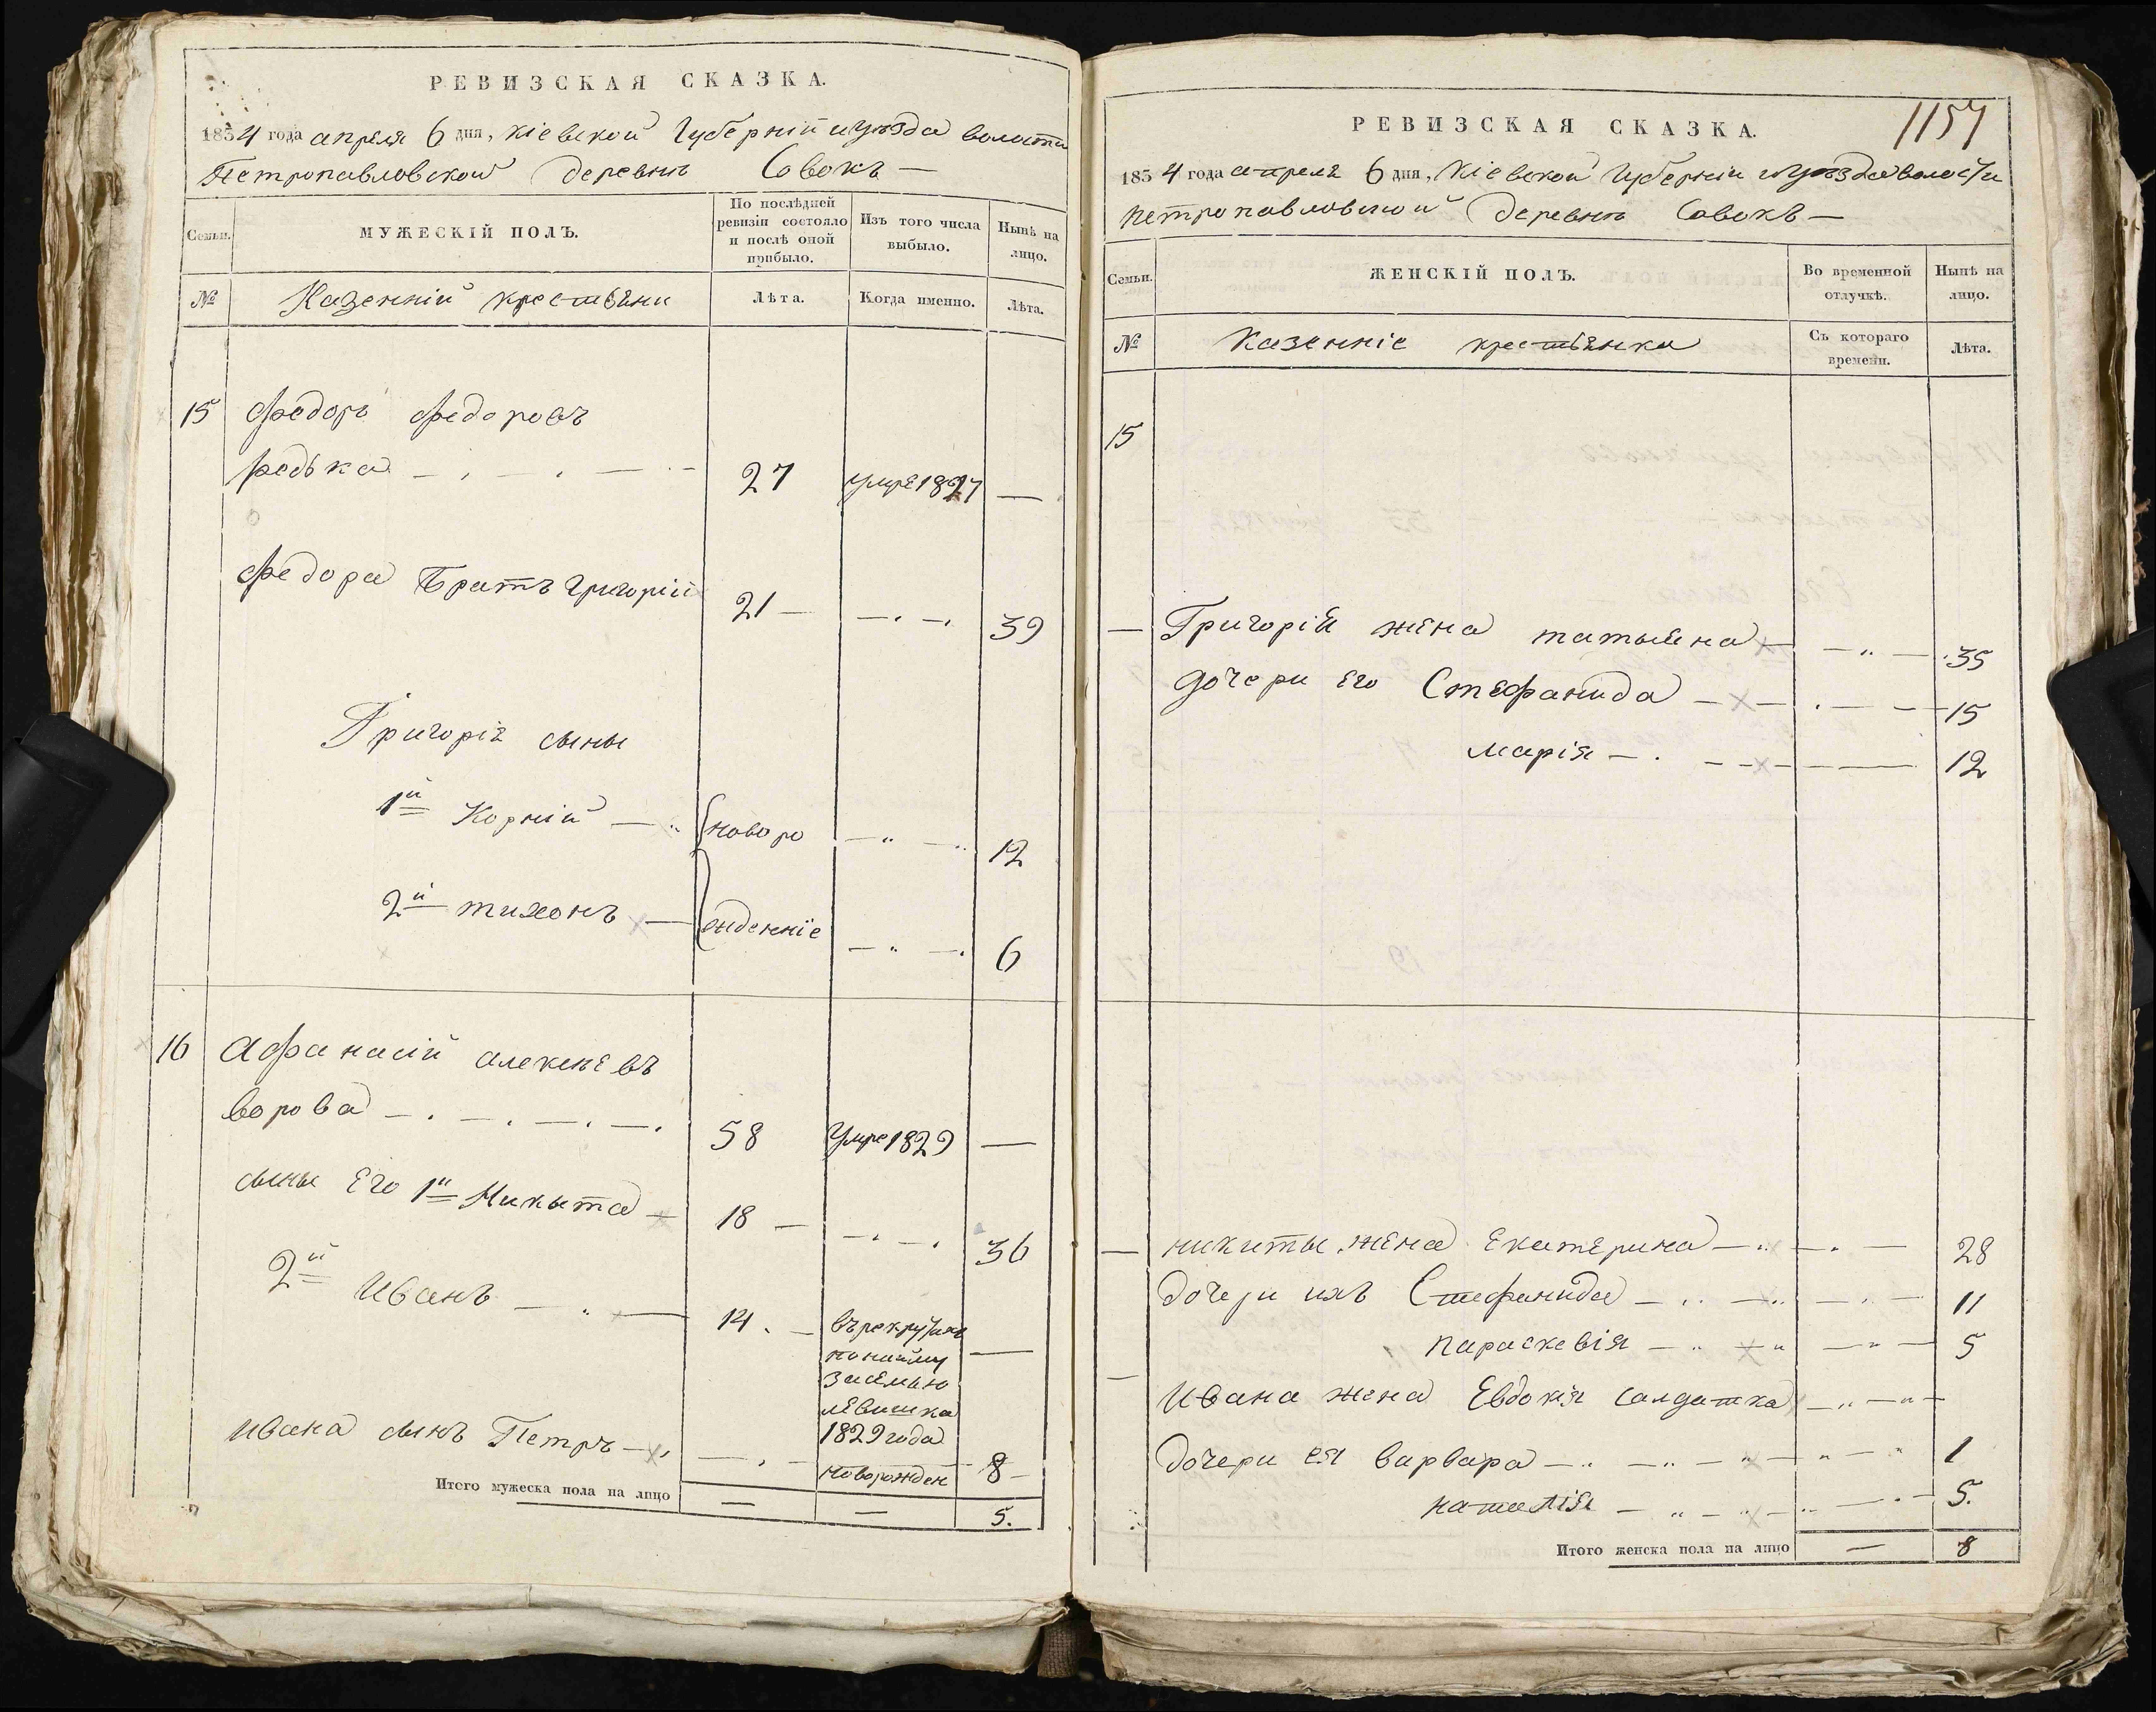 РЕВИЗСКАЯ СКАЗКА.
1834 года апреля 6 дня, Кіевской Губерніи уѣзда волости
Петропавловской деревнѣ Совокъ —
Семьи.
МУЖЕСКІЙ ПОЛЪ.
По послѣдней ревизіи состояло и послѣ оной прибыло.
Изъ того числа выбыло.
Нынѣ на лицо.
№
Казенніи крестьяни
Лѣта.
Когда именно.
Лѣта.
15 Федоръ Федоровъ
редька 27 умре 1827 —
Федора братъ григорій 21 — 39
Григорія сыны
1й Корній новоро 12
2й тихонъ жденніе 6
16 Афанасій алексѣевъ
ворова 58 Умре 1829 —
сыны Его 1й Микыта 18 — 36
2й Иванъ 14 въ рекрутахъ —
по найму
за семью
левшка
1829 года
ивана сынъ Петръ — новорожден 8
Итого мужеска пола на лицо — — 5.
1157
РЕВИЗСКАЯ СКАЗКА.
1834 года апреля 6 дня, Кіевской Губерніи уѣзда волости
петропавловской деревнѣ Совокъ —
Семьи.
ЖЕНСКІЙ ПОЛЪ.
Во временной отлучкѣ.
Нынѣ на лицо.
№
Казенніе крестьянки
Съ котораго времени.
Лѣта.
15
— Григорія жена татьяна — 35
дочери его Стефанида — 15
марія — 12
— никиты жена Екатерина — 28
дочери ихъ Стефанида — 11
параскевія — 5
— Ивана жена Евдокія салдатка —
дочери ея варвара — 1
наталія — 5.
Итого женска пола на лицо — 8